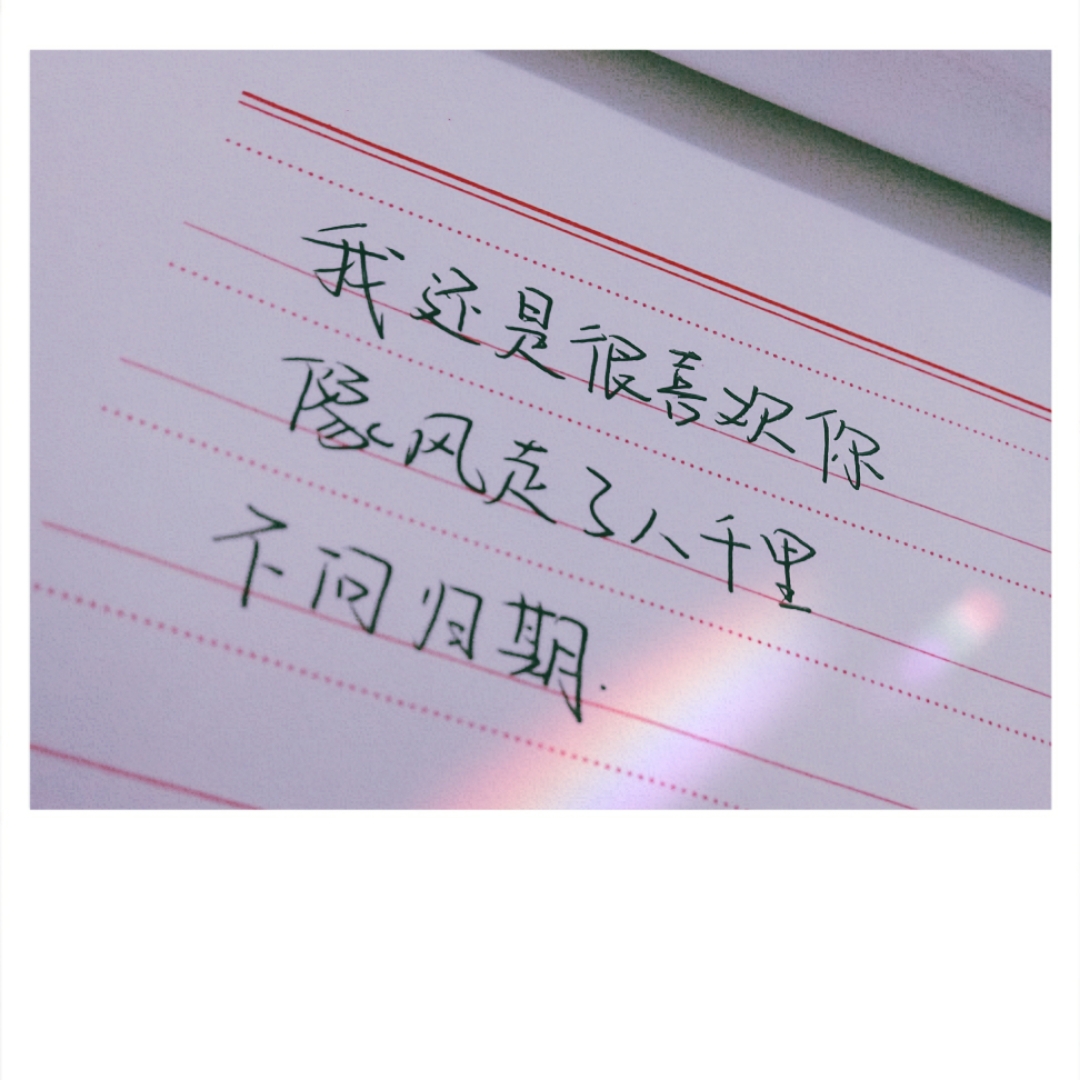 我还是很喜欢你
像风走了八千里
不问归期.